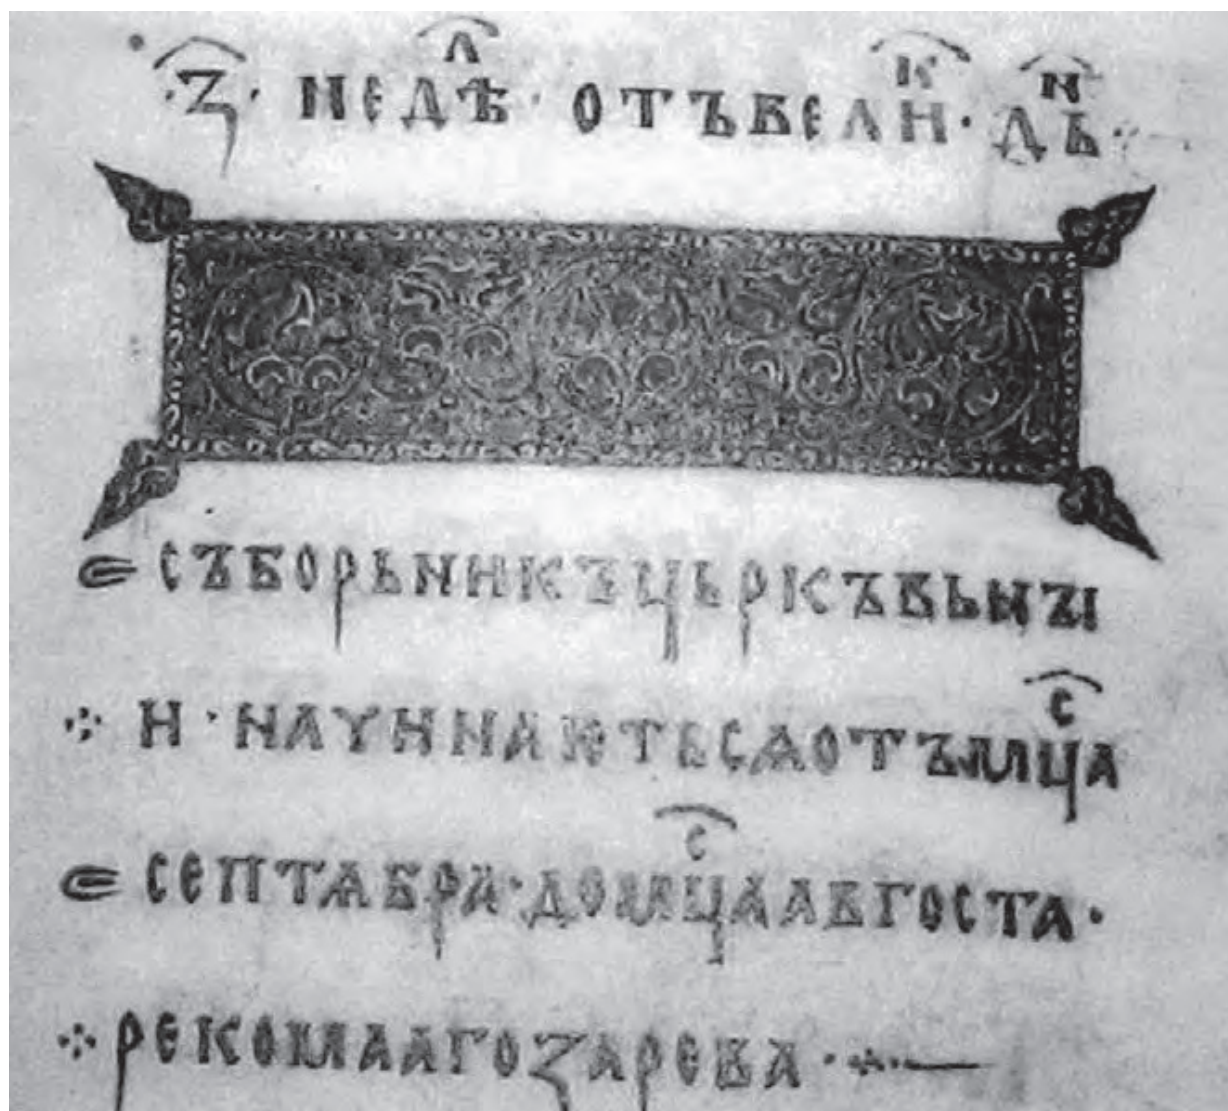 ·з҃· недѣⷧ҇ · отъвелиⷦ҇ · дьⷩ҇ ·:
съборьникъцьркъвьнꙑ
⁘ и · начинаютьсѧотъмцⷭ҇а
септѧбрꙗ · домцⷭ҇аавгоста ·
⁘ рекомаагозарева · ⁘ —